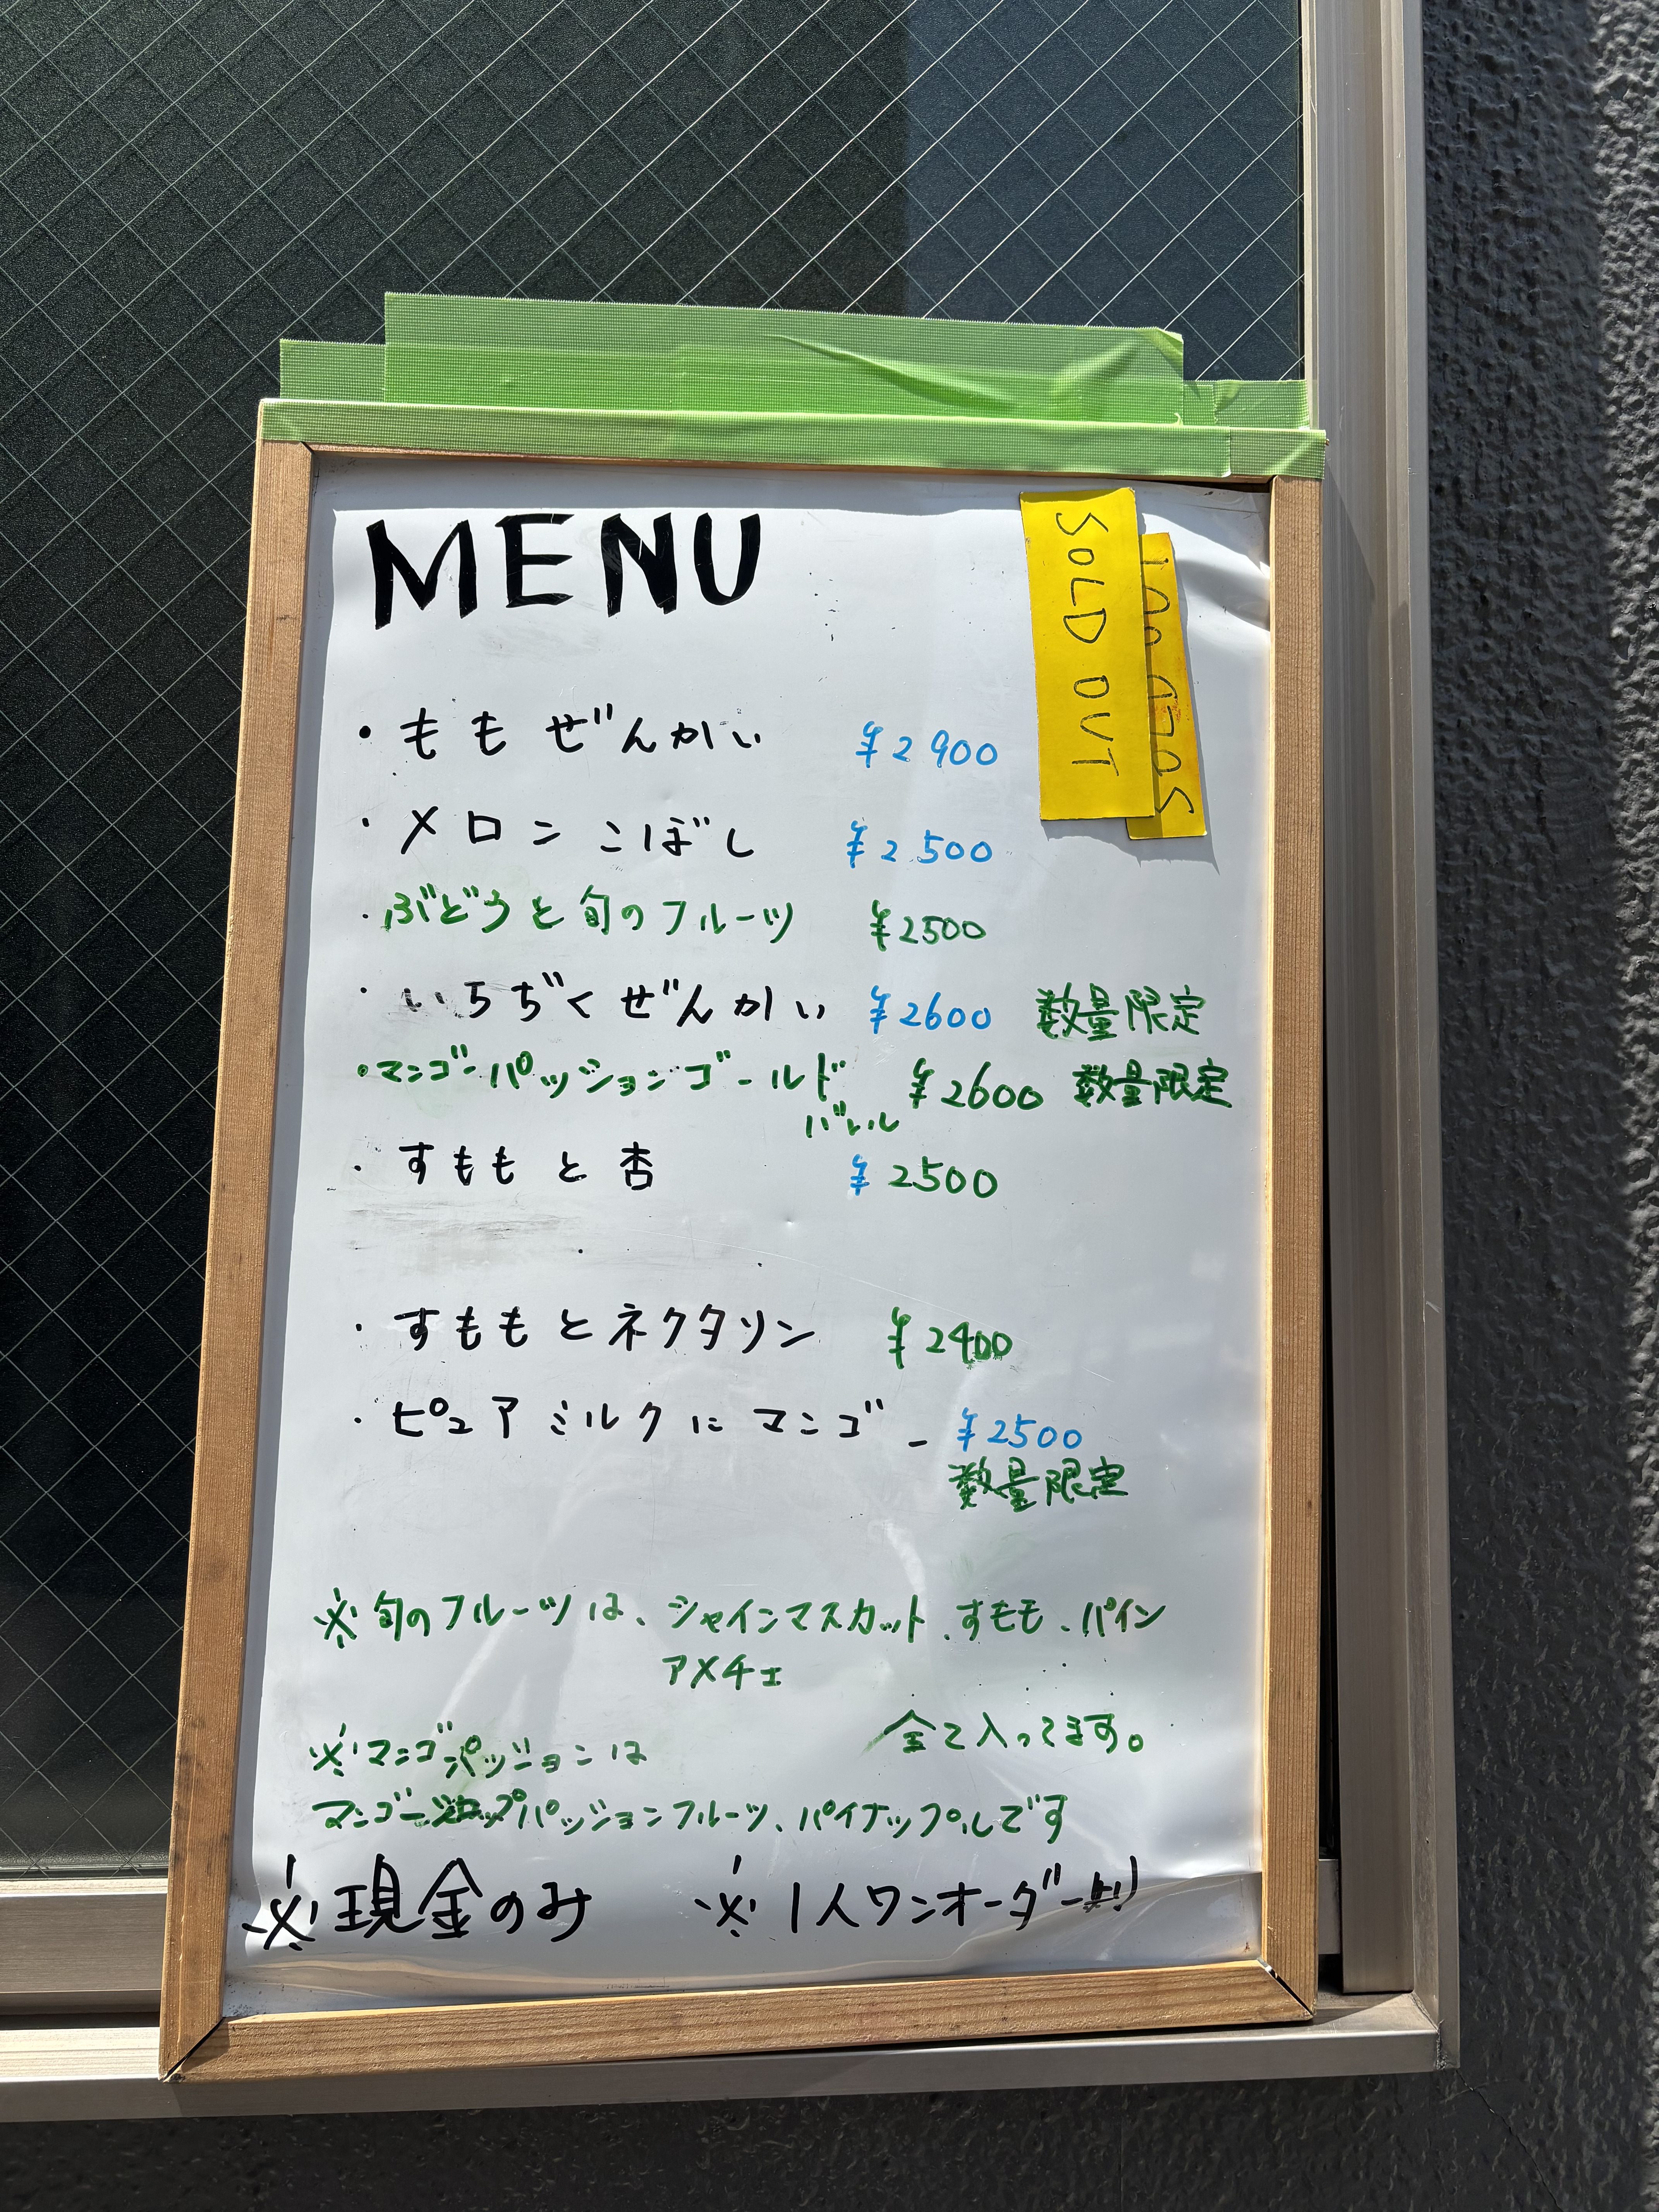 MENU
SOLD OUT
SOLD OUT
・ももぜんかい ¥2900
・メロンこぼし ¥2500
・ぶどうと旬のフルーツ ¥2500
・いちぢくぜんかい ¥2600 数量限定
・マンゴーパッションゴールド ¥2600 数量限定
・すももと杏 ¥2500
・すももとネクタリン ¥2400
・ピュアミルクにマンゴー ¥2500
数量限定
※旬のフルーツは、シャインマスカット、すもも、パイン
アメチェ
全て入ってます。
※マンゴーパッションは
マンゴーパッションフルーツ、パイナップルです
※現金のみ ※1人ワンオーダー制